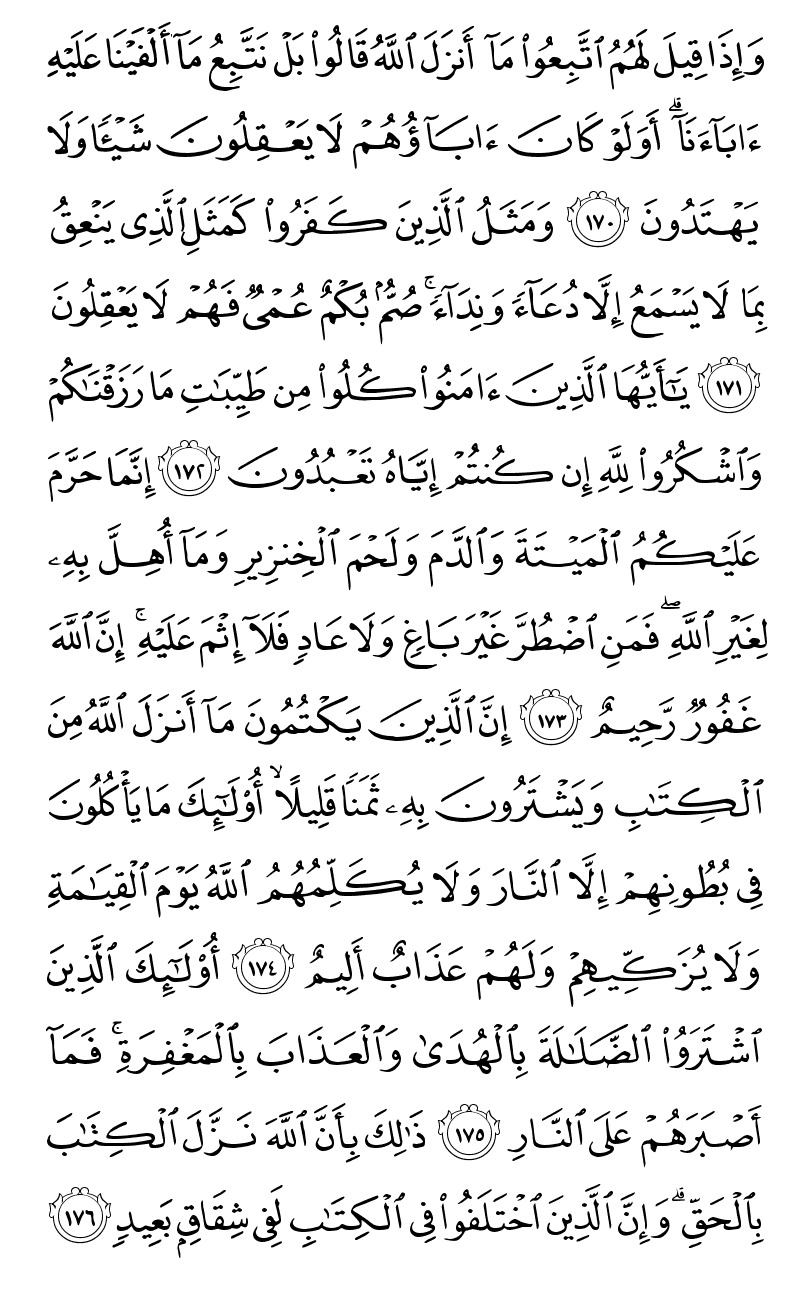 وَإِذَا قِيلَ لَهُمُ ٱتَّبِعُوا۟ مَآ أَنزَلَ ٱللَّهُ قَالُوا۟ بَلْ نَتَّبِعُ مَآ أَلْفَيْنَا عَلَيْهِ
ءَابَآءَنَآ ۗ أَوَلَوْ كَانَ ءَابَآؤُهُمْ لَا يَعْقِلُونَ شَيْـًٔا وَلَا
يَهْتَدُونَ ١٧٠ وَمَثَلُ ٱلَّذِينَ كَفَرُوا۟ كَمَثَلِ ٱلَّذِى يَنْعِقُ
بِمَا لَا يَسْمَعُ إِلَّا دُعَآءً وَنِدَآءً ۚ صُمٌّۢ بُكْمٌ عُمْىٌ فَهُمْ لَا يَعْقِلُونَ
١٧١ يَـٰٓأَيُّهَا ٱلَّذِينَ ءَامَنُوا۟ كُلُوا۟ مِن طَيِّبَـٰتِ مَا رَزَقْنَـٰكُمْ
وَٱشْكُرُوا۟ لِلَّهِ إِن كُنتُمْ إِيَّاهُ تَعْبُدُونَ ١٧٢ إِنَّمَا حَرَّمَ
عَلَيْكُمُ ٱلْمَيْتَةَ وَٱلدَّمَ وَلَحْمَ ٱلْخِنزِيرِ وَمَآ أُهِلَّ بِهِۦ
لِغَيْرِ ٱللَّهِ ۖ فَمَنِ ٱضْطُرَّ غَيْرَ بَاغٍ وَلَا عَادٍ فَلَآ إِثْمَ عَلَيْهِ ۚ إِنَّ ٱللَّهَ
غَفُورٌ رَّحِيمٌ ١٧٣ إِنَّ ٱلَّذِينَ يَكْتُمُونَ مَآ أَنزَلَ ٱللَّهُ مِنَ
ٱلْكِتَـٰبِ وَيَشْتَرُونَ بِهِۦ ثَمَنًا قَلِيلًا ۙ أُو۟لَـٰٓئِكَ مَا يَأْكُلُونَ
فِى بُطُونِهِمْ إِلَّا ٱلنَّارَ وَلَا يُكَلِّمُهُمُ ٱللَّهُ يَوْمَ ٱلْقِيَـٰمَةِ
وَلَا يُزَكِّيهِمْ وَلَهُمْ عَذَابٌ أَلِيمٌ ١٧٤ أُو۟لَـٰٓئِكَ ٱلَّذِينَ
ٱشْتَرَوُا۟ ٱلضَّلَـٰلَةَ بِٱلْهُدَىٰ وَٱلْعَذَابَ بِٱلْمَغْفِرَةِ ۚ فَمَآ
أَصْبَرَهُمْ عَلَى ٱلنَّارِ ١٧٥ ذَٰلِكَ بِأَنَّ ٱللَّهَ نَزَّلَ ٱلْكِتَـٰبَ
بِٱلْحَقِّ ۗ وَإِنَّ ٱلَّذِينَ ٱخْتَلَفُوا۟ فِى ٱلْكِتَـٰبِ لَفِى شِقَاقٍۭ بَعِيدٍ ١٧٦